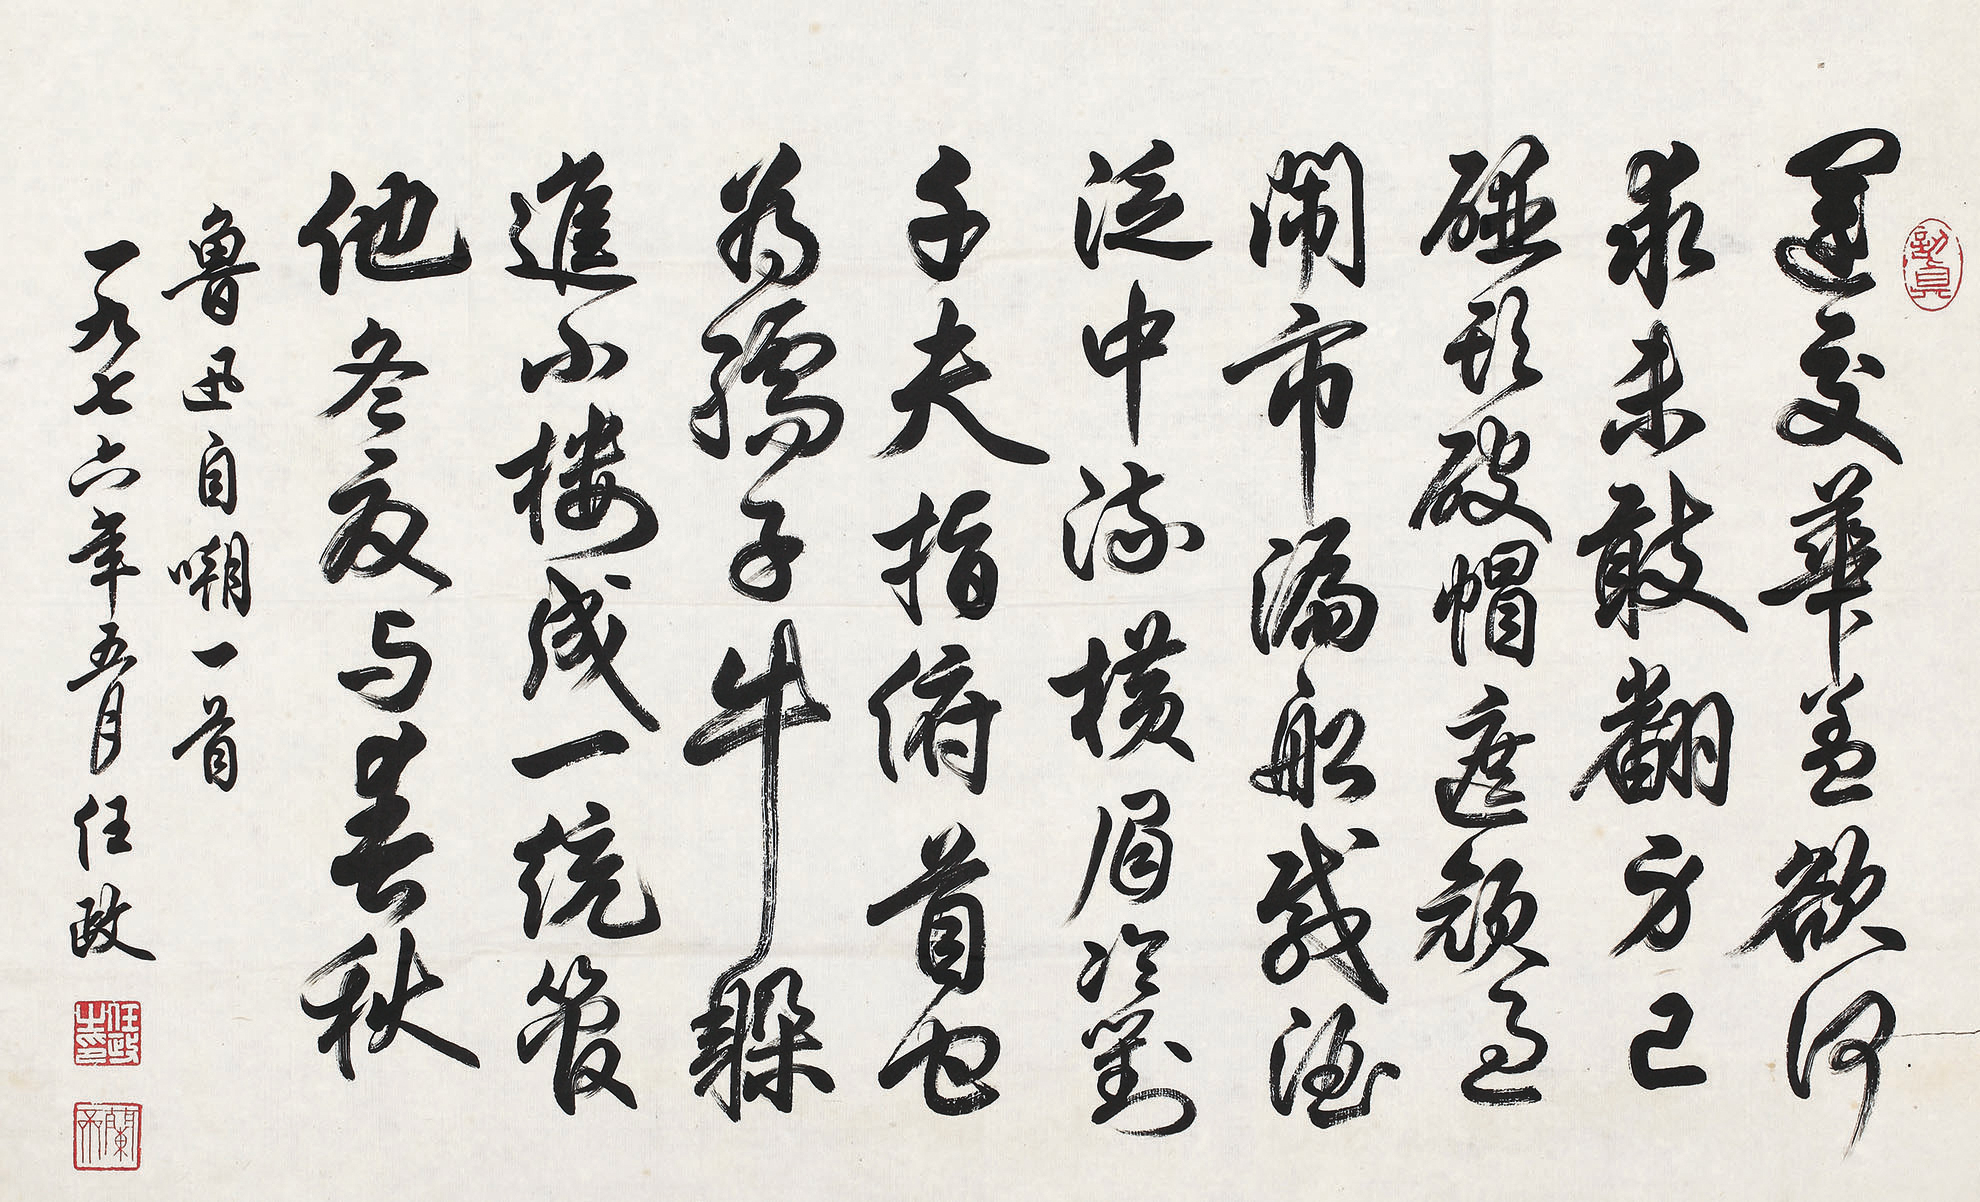 運交華盖欲何
求未敢翻身已
碰頭破帽遮顔過
閙市漏船載酒
泛中流横眉冷對
千夫指俯首甘
為孺子牛躲
進小楼成一統管
他冬夏与春秋
魯迅自嘲一首
一九七六年五月任政
任政之印